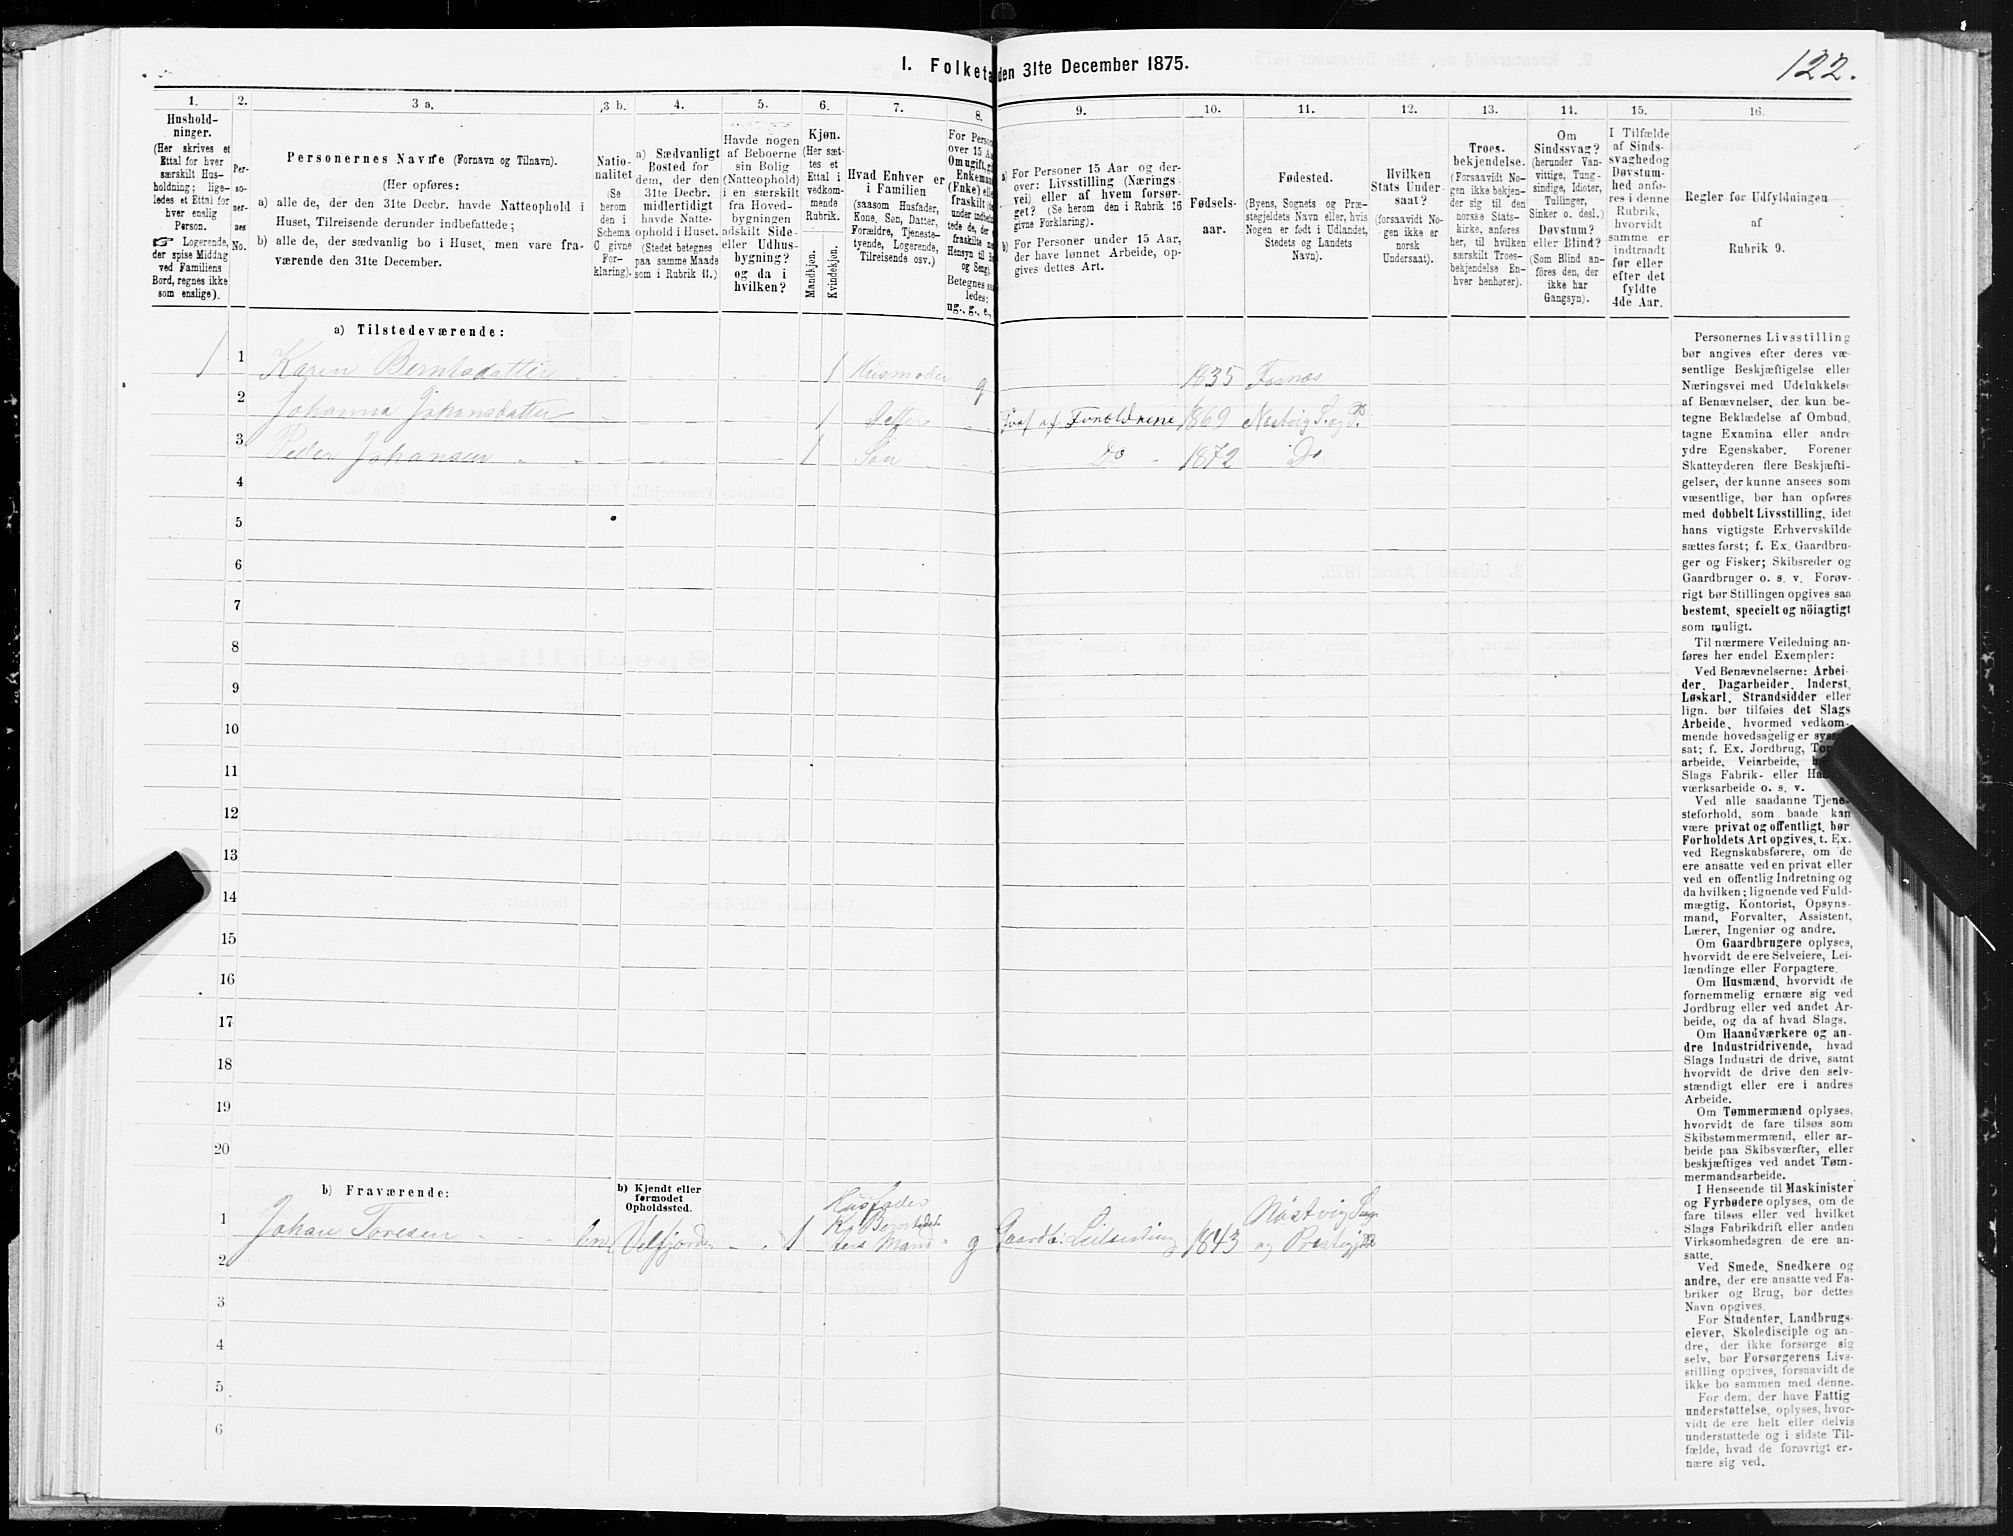 122.
I. Folketa den 31te December 1875.
1. 2. 3 a. 3 b. 4. 5. 6. 7. 8. 9. 10. 11. 12. 13. 14. 15. 16.
Hushold-
ninger.
(Her skrives et
Ettal for hver
særskilt Hus-
holdning; lige-
ledes et Ettal for
hver enslig
Person.
☞ Logerende,
der spise Middag
ved Familiens
Bord, regnes ikke
som enslige).
Per-
so-
ner-
nes
No.
Personernes Navne (Fornavn og Tilnavn).
(Her opføres:
a) alle de, der den 31te Decbr. havde Natteophold i
Huset, Tilreisende derunder indbefattede;
b) alle de, der sædvanlig bo i Huset, men vare fra-
værende den 31te December.
Natio-
nalitet
(Se
herom
den i
Schema
C givne
For-
klaring).
a) Sædvanligt
Bosted for
dem, der den
31te Decbr.
midlertidigt
havde Natte-
ophold i Huset.
(Stedet betegnes
paa samme Maade
som i Rubrik 11.)
Havde nogen
af Beboerne
sin Bolig
(Natteophold)
i en særskilt
fra Hoved-
bygningen
adskilt Side-
eller Udhus-
bygning?
og da i
hvilken?
Kjøn.
(Her sæt-
tes et
Ettal i
vedkom-
mende
Rubrik.
Mandkjøn.
Kvindekjøn.
Hvad Enhver er
i Familien
(saasom Husfader,
Kone, Søn, Datter,
Forældre, Tjeneste-
tyende, Logerende,
Tilreisende osv.)
For Person
over 15 Aa
Om ugift, g
Enkeman
(Enke) elle
fraskilt
under indb
tede de, der
fraskilte
Hensyn til B
og Seng).
Betegnes saa
ledes:
ug., g., e.,
a) For Personer 15 Aar og der-
over: Livsstilling (Nærings
vei) eller af hvem forsør-
get? (Se herom den i Rubrik 16
givne Forklaring).
b) For Personer under 15 Aar,
der have lønnet Arbeide, op-
gives dettes Art.
Fødsels-
aar.
Fødested.
(Byens, Sognets og Præ-
stegjeldets Navn eller, hvis
Nogen er født i Udlandet,
Stedets og Landets
Navn).
Hvilken
Stats Under-
saat?
(forsaavidt No-
gen ikke er
norsk
Undersaat).
Troes-
bekjendelse.
(Forsaavidt No-
gen ikke bekjen-
der sig til den
norske Stats-
kirke, anføres
her, til hvilken
særskilt Troes-
bekjendelse En-
hver henhører).
Om
Sindssvag?
(herunder Van-
vittige, Tung-
sindige, Idioter,
Tullinger,
Sinker o. desl.)
Døvstum?
eller Blind?
(Som Blind an-
føres den, der
ikke har
Gangsyn).
I Tilfælde
af Sinds-
svaghed og
Døvstum-
hed anfø-
res i denne
Rubrik,
hvorvidt
samme er
indtraadt
før eller
efter det
fyldte
4de Aar.
Regler for Udfyldningen
af
Rubrik 9.
a) Tilstedeværende:
1 1 Karen Berntsdatter 1 Husmoder g 1835 Fosnæs
2 Johanna Johansdatter 1 Datter Fors af Forældrene 1869 Nærtvig S. og P.
3 Peder Johansen 1 Søn Do 1872 Do
4
5
6
7
8
9
10
11
12
13
14
15
16
17
18
19
20
b) Fraværende:
b) Kjendt eller
formodet
Opholdssted.
1 Johan Toresen Velfjorden 1 Husfader K. Berntsdatters Mand g Gaardb: Leilending 1843 Nøstvig Sogn og Præstegjeld
2
3
4
5
6
Personernes Livsstilling
bør angives efter deres væ-
sentlige Beskjæftigelse eller
Næringsvei med Udelukkelse
af Benævnelser, der kun be-
tegne Beklædelse af Ombud,
tagne Examina eller andre
ydre Egenskaber. Forener
Skatteyderen flere Beskjæfti-
gelser, der kunne ansees som
væsentlige, bør han opføres
med dobbelt Livsstilling, idet
hans vigtigste Erhvervskilde
sættes først; f. Ex. Gaardbru-
ger og Fisker; Skibsreder og
Gaardbruger o. s. v. Forøv-
rigt bør Stillingen opgives saa
bestemt, specielt og nöiagtigt
som muligt.
Til nærmere Veiledning an-
føres her endel Exempler:
Ved Benævnelserne: Arbei-
der, Dagarbeider, Inderst,
Løskarl, Strandsidder eller
lign. bør tilføies det Slags
Arbeide, hvormed vedkom-
mende hovedsagelig er syssel
sat; f. Ex. Jordbrug, Tom
arbeide, Veiarbeide, h
Slags Fabrik- eller Haa
værksarbeide o. s. v.
Ved alle saadanne Tjene-
steforhold, som baade kan
være privat og offentligt, bør
Forholdets Art opgives, t. Ex.
ved Regnskabsførere, om de
ere ansatte ved en privat eller
ved en offentlig Indretning og
da hvilken; lignende ved Fuld-
mægtig, Kontorist, Opsyns-
mand, Forvalter, Assistent,
Lærer, Ingeniør og andre.
Om Gaardbrugere oplyses,
hvorvidt de ere Selveiere, Lei-
lændinge eller Forpagtere.
Om Husmænd, hvorvidt de
fornemmelig ernære sig ved
Jordbrug eller ved andet Ar-
beide, og da af hvad Slags.
Om Haandværkere og an-
dre Industridrivende, hvad
Slags Industri de drive, samt
hvorvidt de drive den selv-
stændigt eller ere i andres
Arbeide.
Om Tømmermænd oplyses,
hvorvidt de fare tilsøs som
Skibstømmermænd, eller ar-
beide paa Skibsværfter, eller
beskjæftiges ved andet Tøm-
mermandsarbeide.
I Henseende til Maskinister
og Fyrbødere oplyses, om de
fare tilsøs eller ved hvilket
Slags Fabrikdrift eller anden
Virksomhedsgren de ere an-
satte.
Ved Smede, Snedkere og
andre, der ere ansatte ved Fa-
briker og Brug, bør dettes
Navn opgives.
For Studenter, Landbrugs-
elever, Skoledisciple og an-
dre, der ikke forsørge sig
selv, bør Forsørgerens Livs-
stilling opgives, forsaavidt de
ikke bo sammen med denne.
For dem, der have Fattig-
understøttelse, oplyses, hvor-
vidt de ere helt eller delvis
understøttede og i sidste Til-
fælde, hvad de forøvrigt er-
nære sig ved.